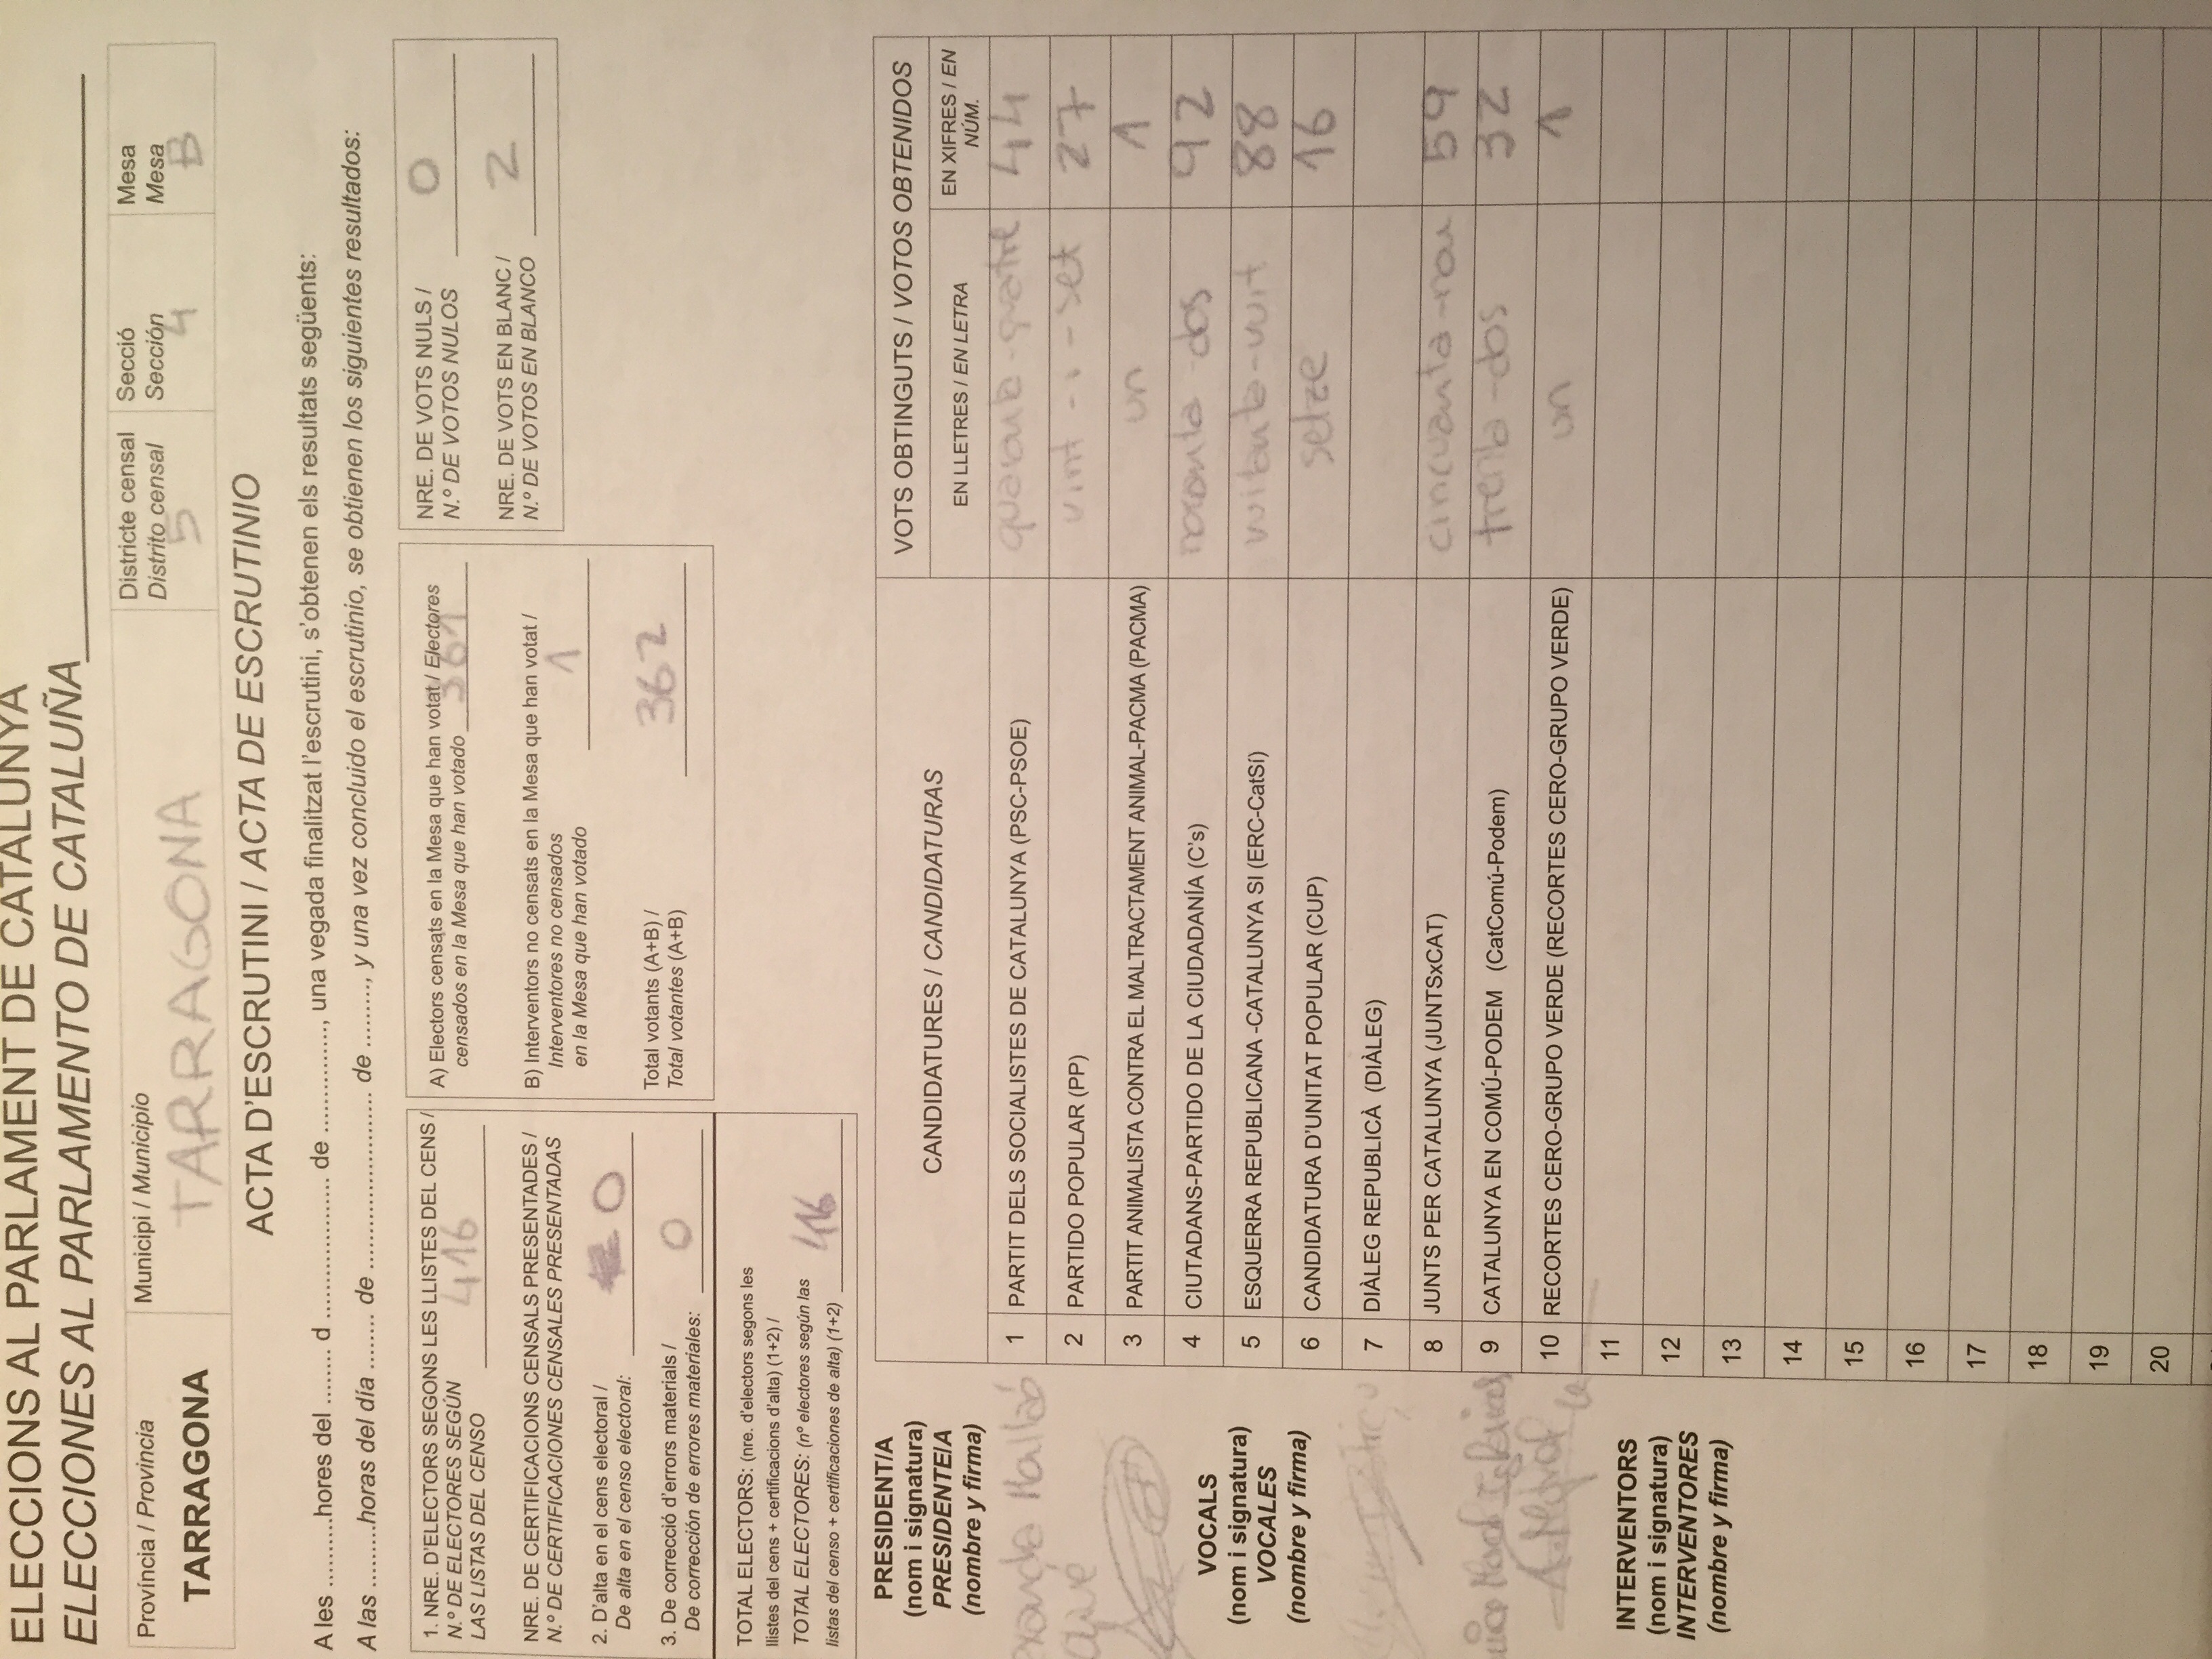 ELECCIONS AL PARLAMENT DE CATALUNYA
ELECCIONES AL PARLAMENTO DE CATALUÑA
Província / Provincia
TARRAGONA
Municipi / Municipio
TARRAGONA
Districte censal
Distrito censal
5
Secció
Sección
4
Mesa
Mesa
B
ACTA D'ESCRUTINI / ACTA DE ESCRUTINIO
A les ..........hores del ........ d .................... de ..............., una vegada finalitzat l'escrutini, s'obtenen els resultats següents:
A las .........horas del día ........ de ......................... de ........., y una vez concluido el escrutinio, se obtienen los siguientes resultados:
1. NRE. D'ELECTORS SEGONS LES LLISTES DEL CENS /
N.º DE ELECTORES SEGÚN
LAS LISTAS DEL CENSO 416
NRE. DE CERTIFICACIONS CENSALS PRESENTADES /
N.º DE CERTIFICACIONES CENSALES PRESENTADAS
2. D'alta en el cens electoral /
De alta en el censo electoral: 0
3. De correcció d'errors materials /
De corrección de errores materiales: 0
TOTAL ELECTORS: (nre. d'electors segons les
llistes del cens + certificacions d'alta) (1+2) /
TOTAL ELECTORES: (nº electores según las
listas del censo + certificaciones de alta) (1+2) 416
A) Electors censats en la Mesa que han votat / Electores
censados en la Mesa que han votado 361
B) Interventors no censats en la Mesa que han votat /
Interventores no censados
en la Mesa que han votado 1
Total votants (A+B) /
Total votantes (A+B) 362
NRE. DE VOTS NULS /
N.º DE VOTOS NULOS 0
NRE. DE VOTS EN BLANC /
N.º DE VOTOS EN BLANCO 2
PRESIDENT/A
(nom i signatura)
PRESIDENTE/A
(nombre y firma)
VOCALS
(nom i signatura)
VOCALES
(nombre y firma)
INTERVENTORS
(nom i signatura)
INTERVENTORES
(nombre y firma)
CANDIDATURES / CANDIDATURAS
VOTS OBTINGUTS / VOTOS OBTENIDOS
EN LLETRES / EN LETRA
EN XIFRES / EN
NÚM.
1 PARTIT DELS SOCIALISTES DE CATALUNYA (PSC-PSOE) quaranta-quatre 44
2 PARTIDO POPULAR (PP) vint-i-set 27
3 PARTIT ANIMALISTA CONTRA EL MALTRACTAMENT ANIMAL-PACMA (PACMA) un 1
4 CIUTADANS-PARTIDO DE LA CIUDADANÍA (C's) noranta-dos 92
5 ESQUERRA REPUBLICANA -CATALUNYA SI (ERC-CatSí) vuitanta-vuit 88
6 CANDIDATURA D'UNITAT POPULAR (CUP) setze 16
7 DIÀLEG REPUBLICÀ (DIÀLEG)
8 JUNTS PER CATALUNYA (JUNTSxCAT) cincuanta-nou 59
9 CATALUNYA EN COMÚ-PODEM (CatComú-Podem) trenta-dos 32
10 RECORTES CERO-GRUPO VERDE (RECORTES CERO-GRUPO VERDE) un 1
11
12
13
14
15
16
17
18
19
20